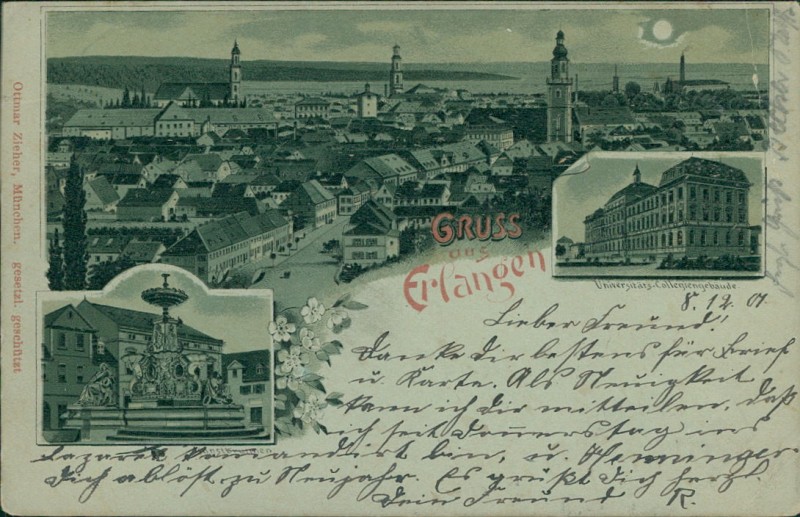 Ottmar Zieher, München. gesetzl. geschützt
GRUSS
aus
Erlangen
Universitäts-Collegiengebäude
8.12.01
Lieber Freund!
Danke Dir bestens für Brief
u. Karte. Als Neuigkeit
kann ich Dir mitteilen, daß
ich seit Donnerstag ins
Lazarett komandirt bin, u. Henninger
Dich ablöst zu Neujahr. Es grüßt Dich herzl.
Dein Freund R.